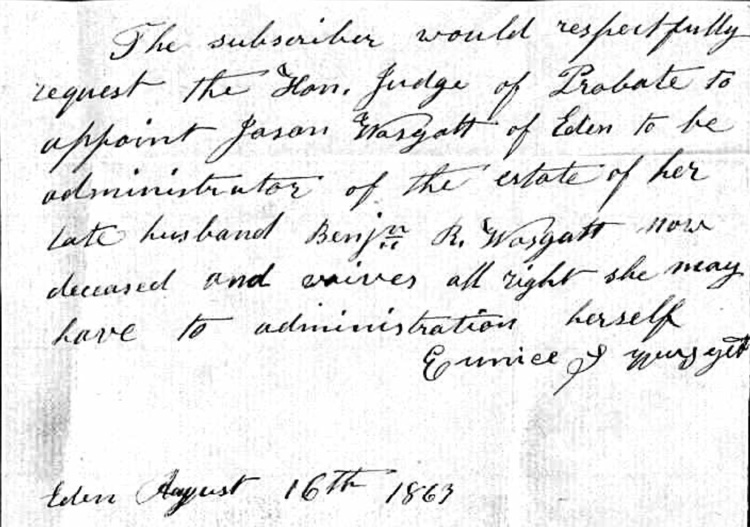 The subscriber would respectfully
request the Hon. Judge of Probate to
appoint Jason Wasgatt of Eden to be
administrator of the estate of her
late husband Benjn R. Wasgatt now
deceased and waives all right she may
have to administration herself
Eunice J
Eden August 16th 1863